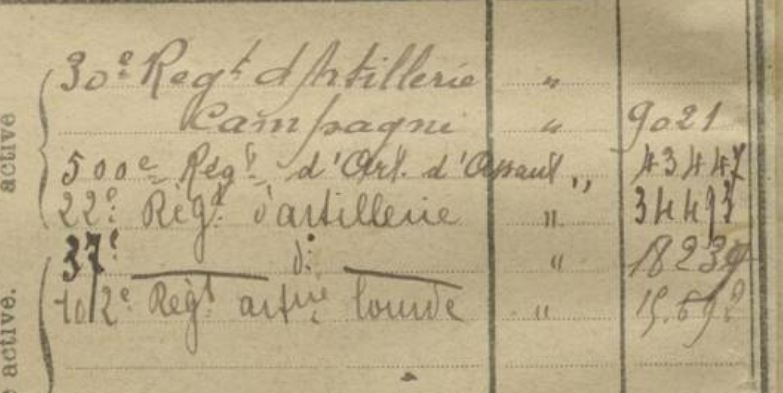 active
30e Regt d'Artillerie "
Campagne " 9021
500e Régt d'Art. d'Assaut " 43447
22e Régt d'artillerie " 34493
37e — di — " 18239
102e Régt artrie lourde "
active.